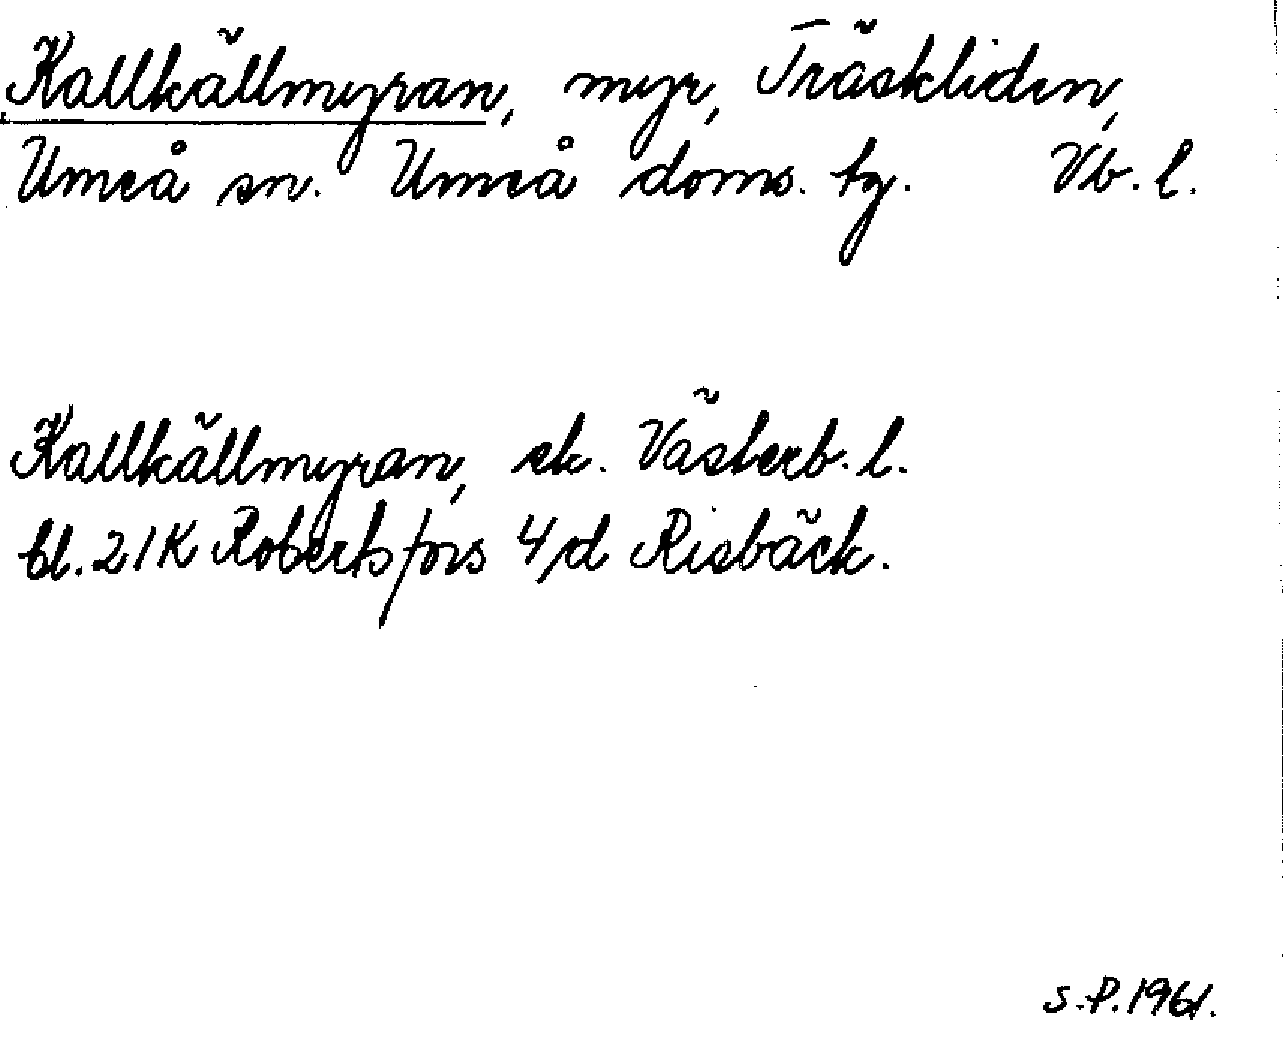 Kallkällmyran, myr, Träskliden,
Umeå sn. Umeå doms. tg. Vb. l.
Kallkällmyran, ek. Västerb. l.
bl. 21K Robertsfors 4/d Risbäck.
S.P. 1961.